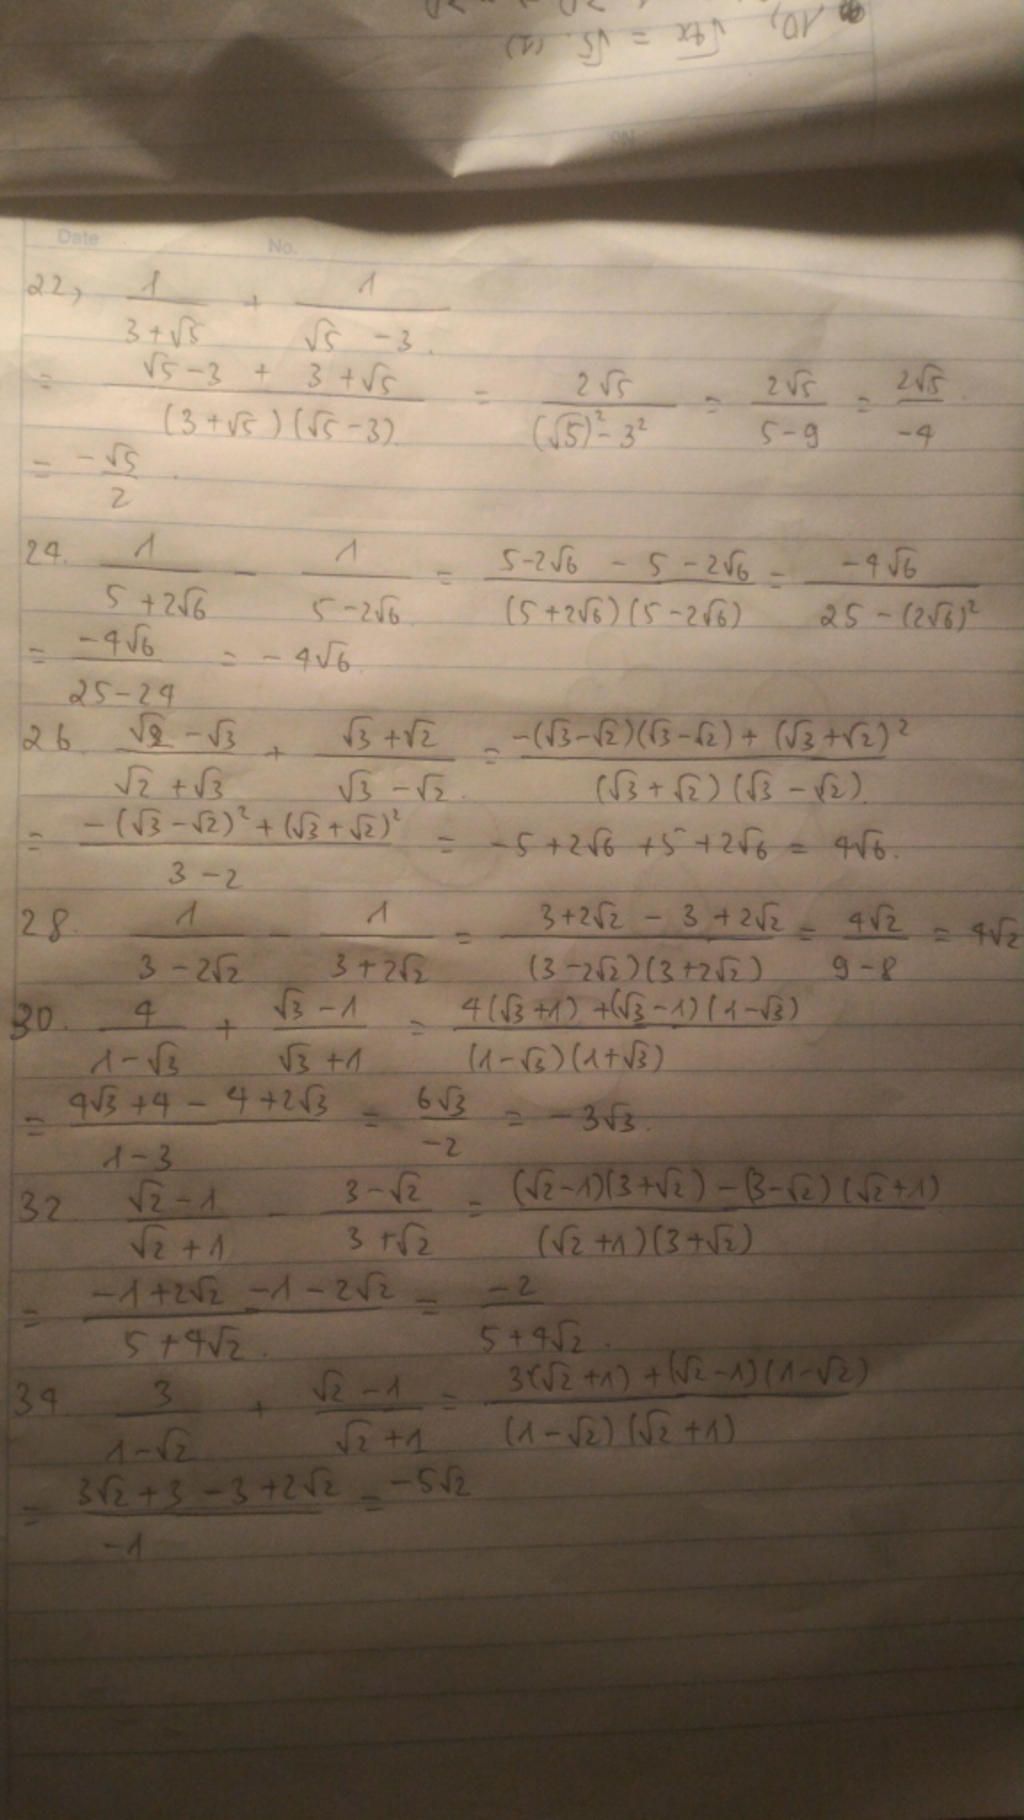 10, √4x = √5. (1)
Date No.
22, 1/(3+√5) + 1/(√5 -3).
= (√5-3 + 3+√5)/((3+√5)(√5-3)) = 2√5/((√5)²-3²) = 2√5/(5-9) = 2√5/-4.
= -√5/2.
24. 1/(5+2√6) - 1/(5-2√6) = (5-2√6 - 5-2√6)/((5+2√6)(5-2√6)) = -4√6/(25-(2√6)²)
= -4√6/(25-24) = -4√6.
26. (√2-√3)/(√2+√3) + (√3+√2)/(√3-√2). = (-(√3-√2)(√3-√2) + (√3+√2)²)/((√3+√2)(√3-√2))
= (-(√3-√2)²+(√3+√2)²)/(3-2) = -5+2√6+5+2√6 = 4√6.
28. 1/(3-2√2) - 1/(3+2√2) = (3+2√2 - 3+2√2)/((3-2√2)(3+2√2)) = 4√2/(9-8) = 4√2
30. 4/(1-√3) + (√3-1)/(√3+1) = (4(√3+1)+(√3-1)(1-√3))/((1-√3)(1+√3))
= (4√3+4-4+2√3)/(1-3) = 6√3/-2 = -3√3.
32 (√2-1)/(√2+1) - (3-√2)/(3+√2) = ((√2-1)(3+√2)-(3-√2)(√2+1))/((√2+1)(3+√2))
= (-1+2√2-1-2√2)/(5+4√2). = -2/(5+4√2).
34 3/(1-√2) + (√2-1)/(√2+1) = (3(√2+1)+(√2-1)(1-√2))/((1-√2)(√2+1))
= (3√2+3-3+2√2)/-1 = -5√2